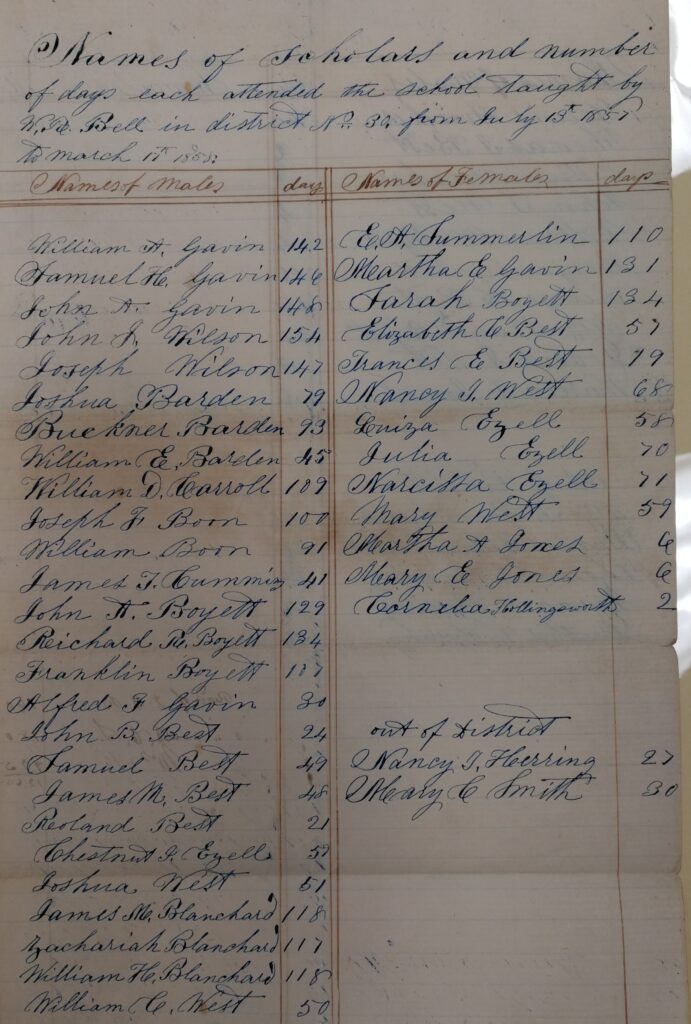 Names of Scholars and number
of days each attended the school taught by
W. R. Bell in district No. 34 from July 13th 1857
to march 17th 1858.
Names of Males days Names of Females days
William A. Gavin 142 E. A. Summerlin 110
Samuel H. Gavin 146 Martha E Gavin 131
John A. Gavin 148 Sarah Boyett 134
John J. Wilson 154 Elizabeth C Best 57
Joseph Wilson 147 Frances E Best 79
Joshua Barden 79 Nancy J. West 68
Buckner Barden 93 Luiza Ezell 58
William E. Barden 45 Julia Ezell 70
William D. Carroll 109 Narcissa Ezell 71
Joseph F Boon 100 Mary West 59
William Boon 91 Martha A Jones 6
James T. Cumming 41 Mary E Jones 6
John A. Boyett 129 Cornelia Hollingsworth 2
Reichard R. Boyett 134
Franklin Boyett 107
Alfred F Gavin 30
John B. Best 24 out of District
Samuel Best 49 Nancy J. Herring 27
James M. Best 48 Mary C Smith 30
Roland Best 21
Chestnut J. Ezell 57
Joshua West 51
James M. Blanchard 118
Zachariah Blanchard 117
William H. Blanchard 118
William C. West 50